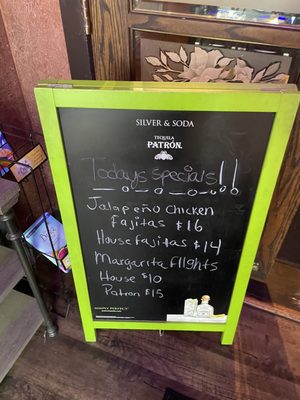 SILVER & SODA
TEQUILA
PATRÓN
Todays specials!!
Jalapeño chicken
fajitas $16
House fajitas $14
Margarita flights
House $10
Patron $15
SIMPLY PERFECT